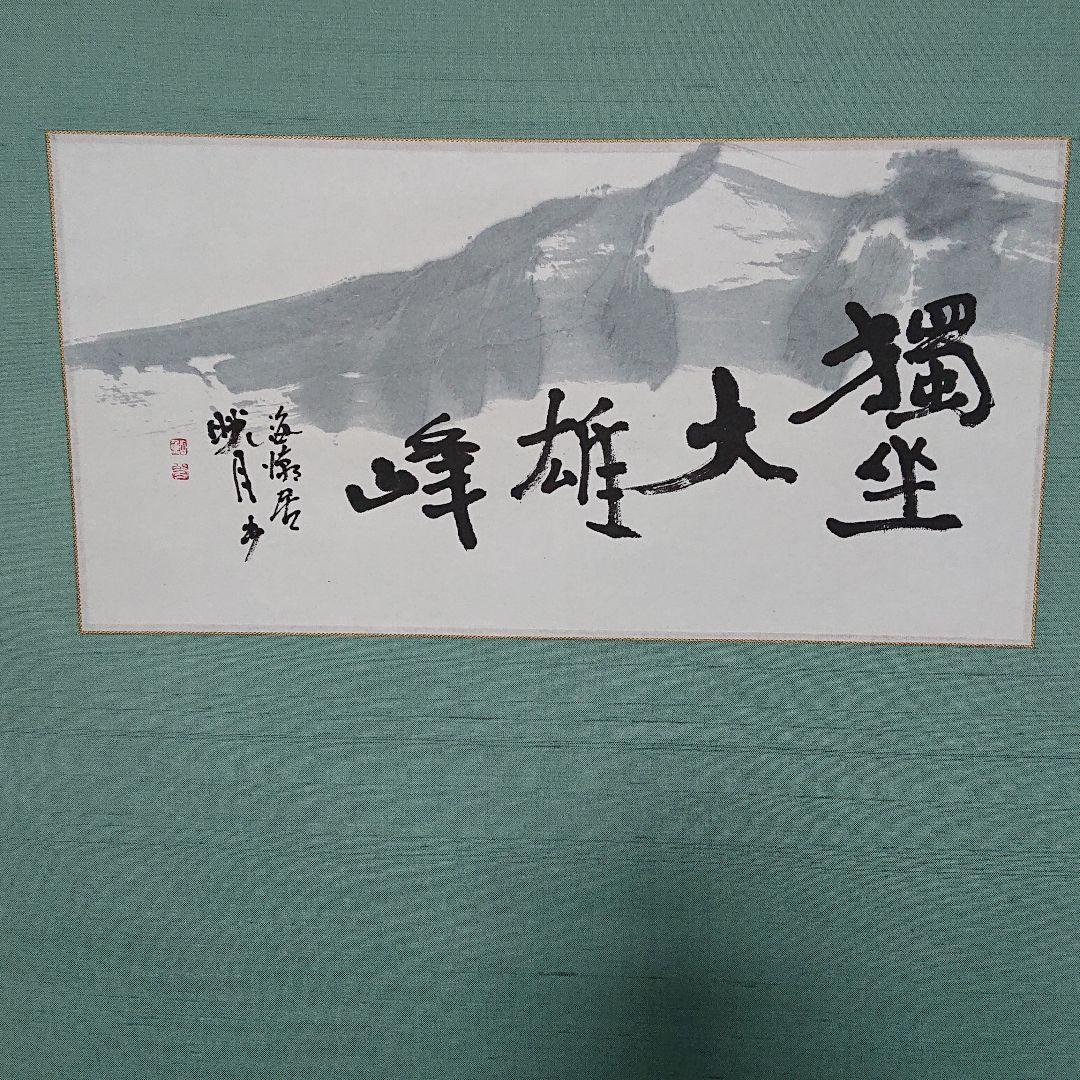 獨坐
大
雄
峰
海潮居
曉月書